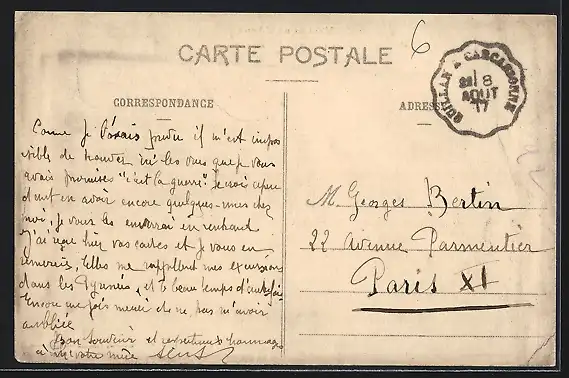 CARTE POSTALE
6
QUILLAN A CARCASSONNE
8
AOUT
17
CORRESPONDANCE
ADRESSE
Come je prevu il m'est impos
sible de trouver ici les vues que je vous
avais promises "c'est la guerre". Je crois cepen
dant en avoir encore quelques-unes chez
moi, je vous les enverrai en rentrant
J'ai reçu hier vos cartes et je vous en
remercie, Elles me rappellent mes excursions
dans les Pyrenées, et le beau temps d'autrefois.
Encore une fois merci de ne pas m'avoir
oublié
Bon souvenir et respectueux hommages
à votre mère
M. Georges Bertin
22 Avenue Parmentier
Paris XI